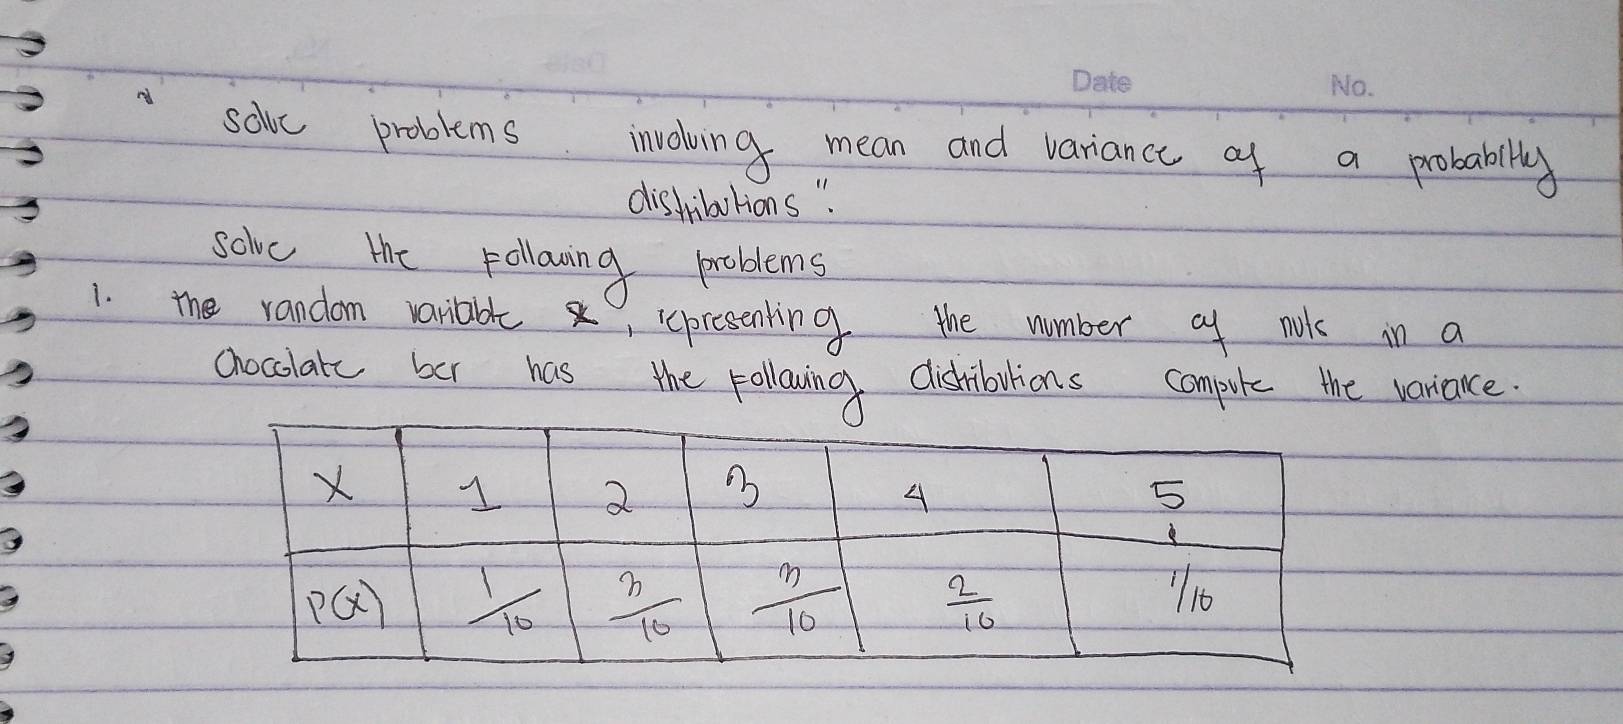 Date No.
" solve problems involving mean and variance of a probability
distributions".
solve the following problems
1. The random variable x, representing the number of nuts in a
Chocolate bar has the following distributions compute the variance.
X 1 2 3 4 5
P(x) 1/10 3/10 3/10 2/10 1/10